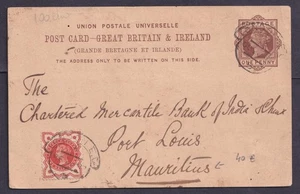 UNION POSTALE UNIVERSELLE
POST CARD–GREAT BRITAIN & IRELAND
(GRANDE BRETAGNE ET IRLANDE)
THE ADDRESS ONLY TO BE WRITTEN ON THIS SIDE.
POSTAGE
ONE PENNY
The
Chartered Mercantile Bank of India &
Port Louis
Mauritius
40 €